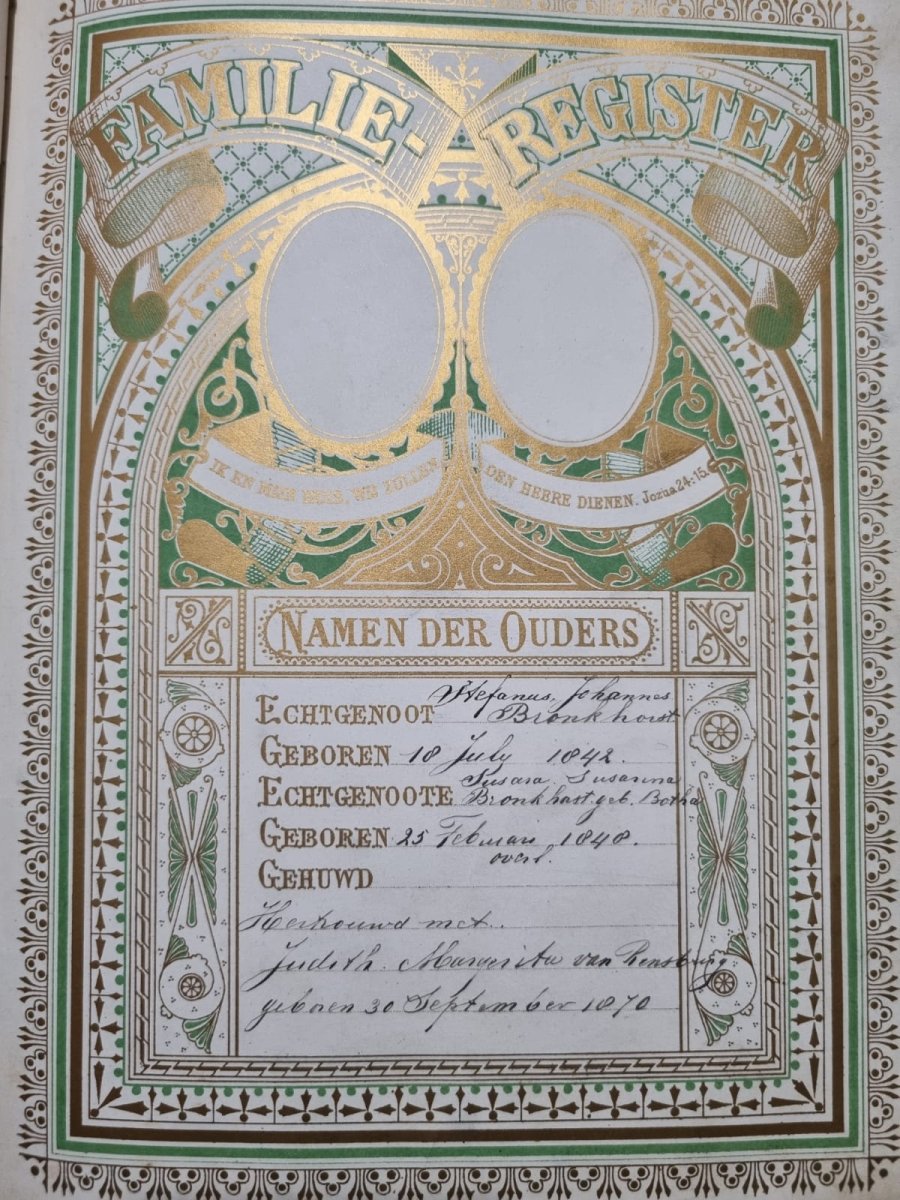 FAMILIE-REGISTER
IK EN MIJN HUIS, WIJ ZULLEN DEN HEERE DIENEN. Jozua 24:15.
NAMEN DER OUDERS
ECHTGENOOT Stefanus, Johannes
Bronkhorst
GEBOREN 18 July 1842.
ECHTGENOOTE Susara Susanna
Bronkhast geb. Botha
GEBOREN 25 Februari 1848.
overl.
GEHUWD
Hertrouwd met..
Judith. Margerita van Rensburg
geboren 30 September 1870